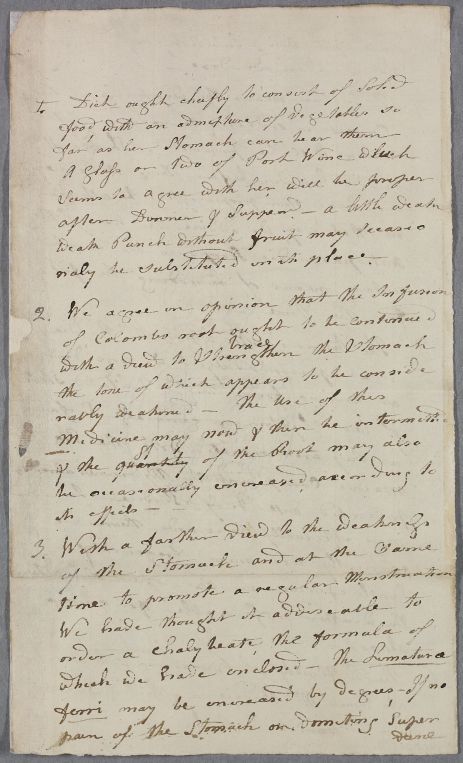 1. Diet ought chiefly to consist of Solid
food with an admixture of Vegetables so
far as her Stomach can bear them
A Glass or two of Port Wine which
seems to agree with her will be proper
after Dinner & Supper — a little weak
weak Punch without fruit may occasio
naly be substituted in its place. —
2. We agree in opinion that the Infusion
of Colombo root ought to be continued
with a view to brace Strengthen the Stomach
the tone of which appears to be conside
rably weakened — The Use of this
Medicine may now & then be intermitted
& the quantity of the Root may also
be occasionally encreased according to
its effects —
3. With a farther view to the weakness
of the Stomach and at the Same
time to promote a regular Menstruation
We have thought it adviseable to
order a Chalybeate, the formula of
which we have enclosed — the Limatura
ferri may be encreased by degrees — If no
pain of the Stomach or Vomiting Super
vene